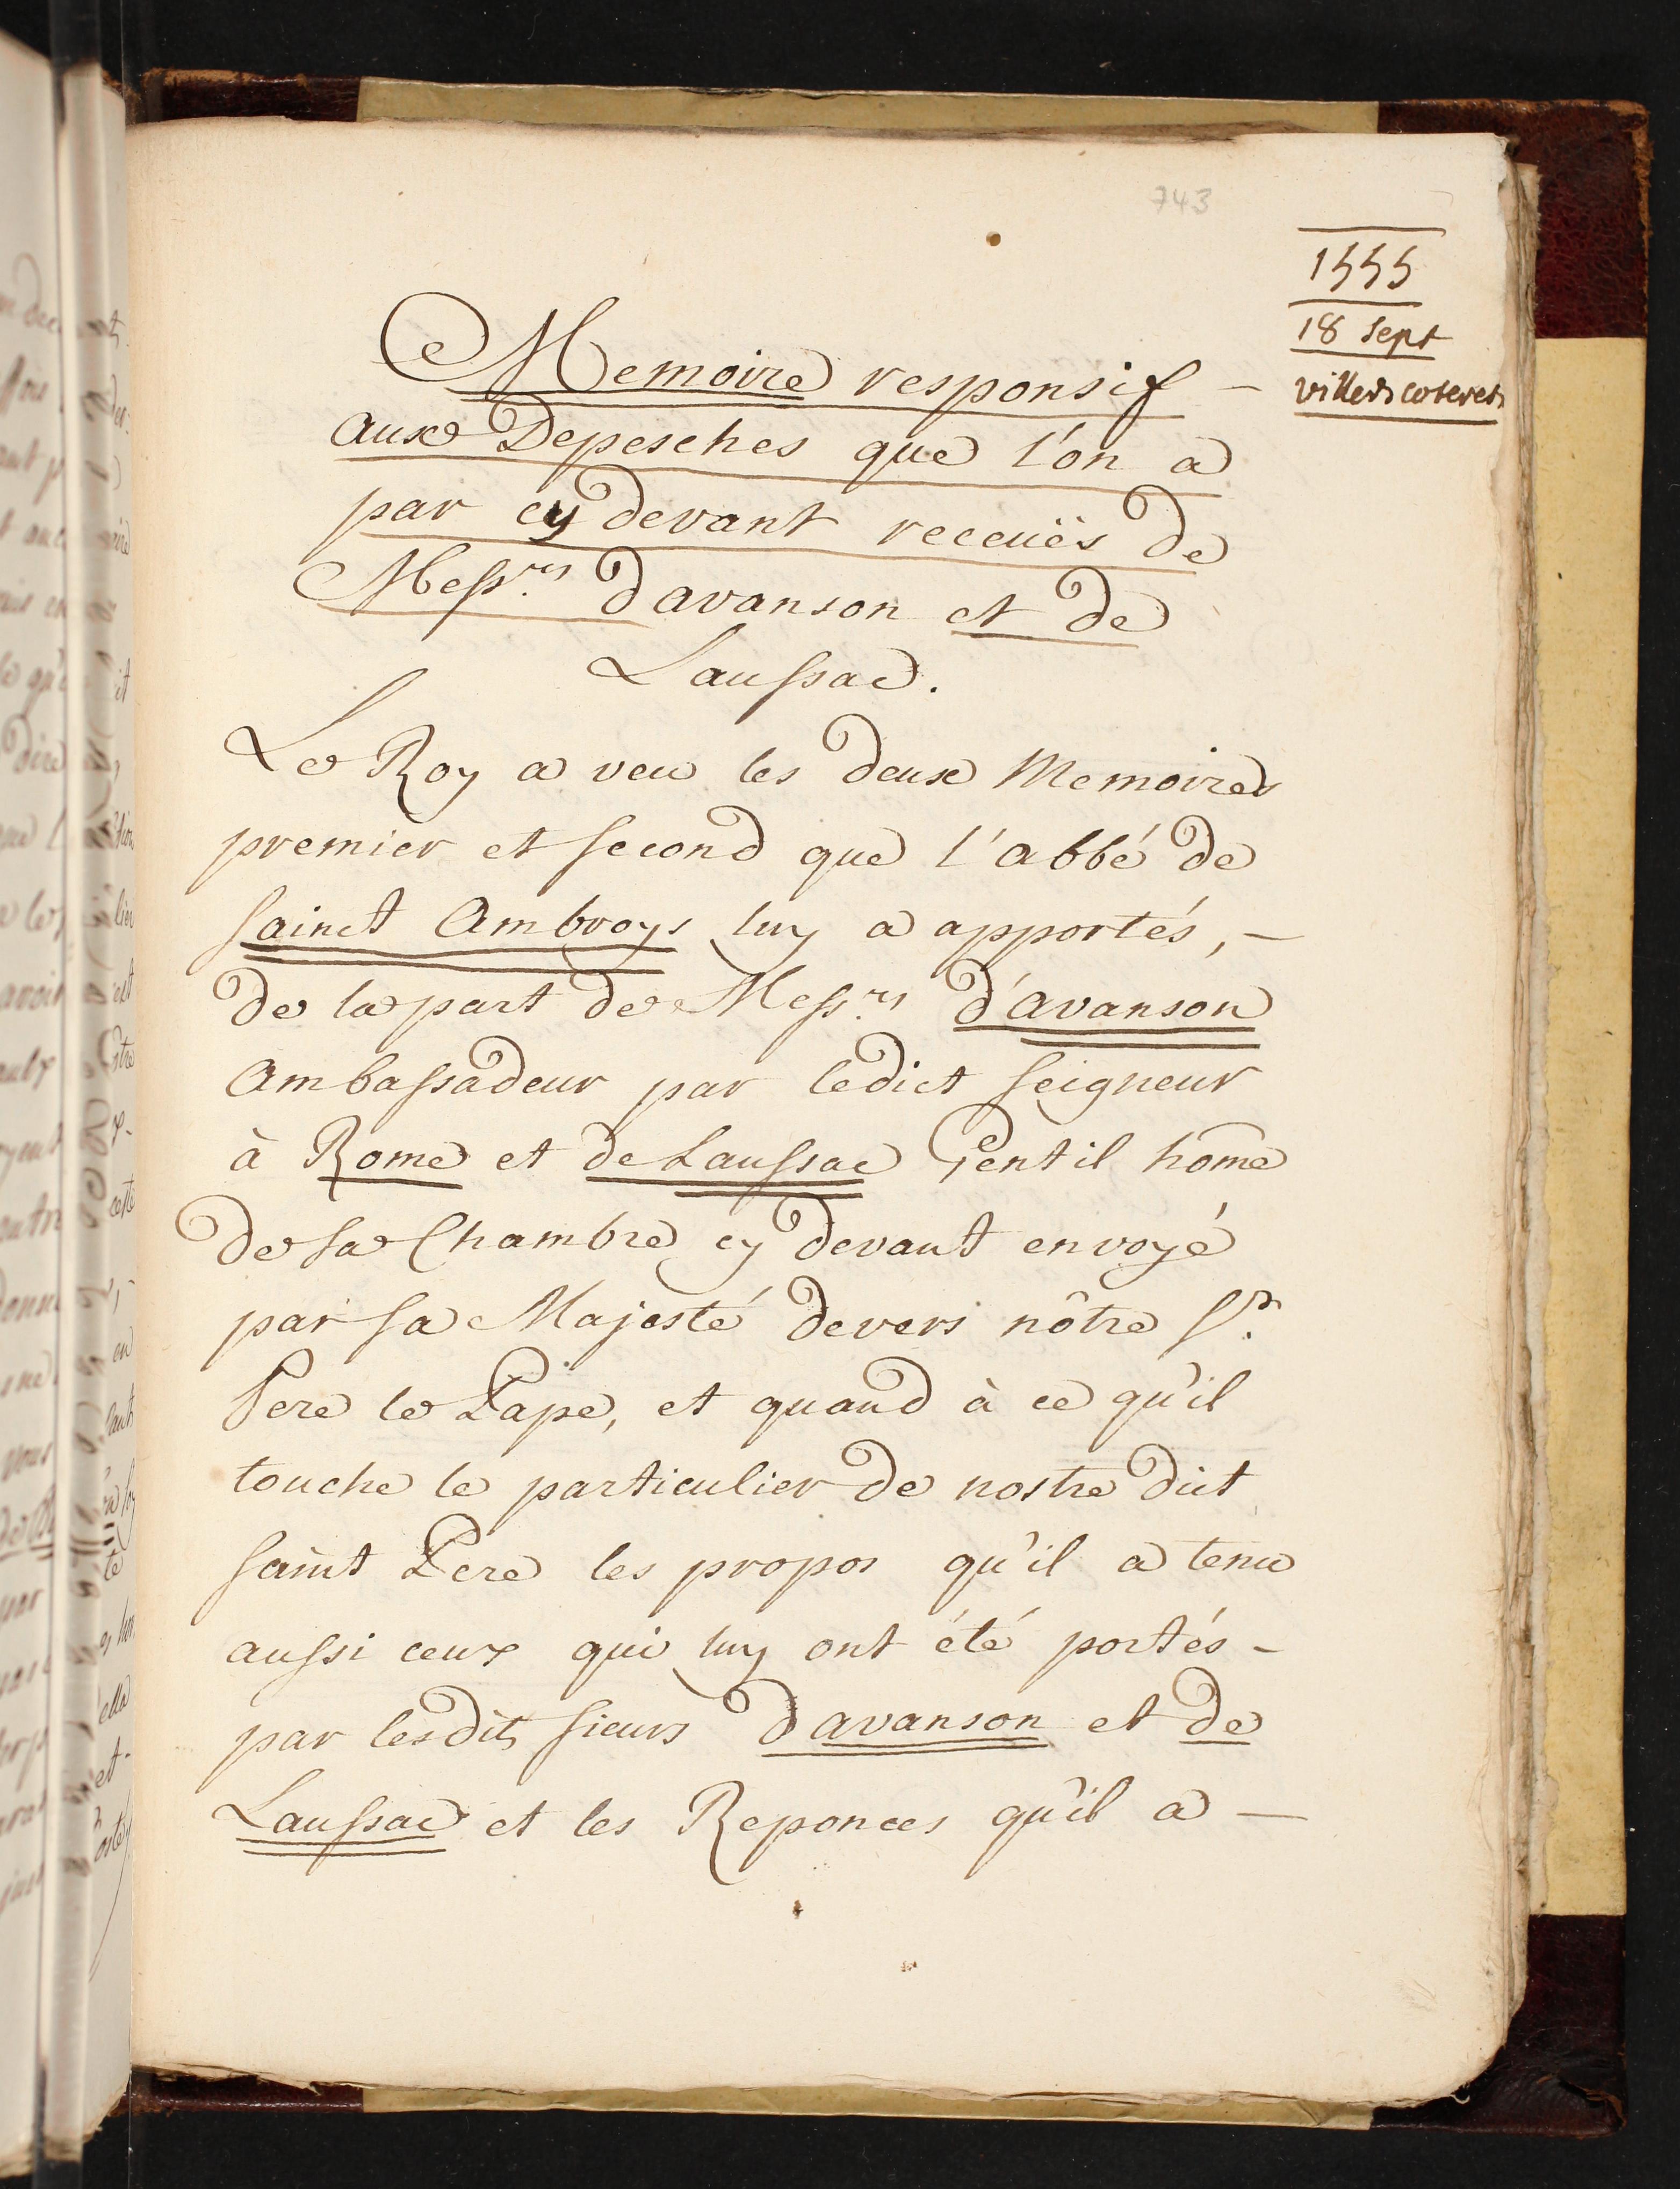 743
1555
18 Sept
villers coterets
Memoire responsif -
aux Depesches que l'on a
par cy devant receuës de
Mess.rs davanson et de
Laussac.
Le Roy a veu les deux Memoires
premier et second que l'abbé de
sainct Ambroys luy a apportés, -
de la part de Mess.rs d'avanson
Ambassadeur par ledict seigneur
à Rome et de Laussac Gentil home
de sa Chambre cy devant envoyé
par sa Majesté devers nôtre S.t
Pere le Pape, et quand à ce qu'il
touche le particulier de nostre dit
saint Pere les propos qu'il a tenu
aussi ceux qui luy ont été portés -
par lesdits sieurs davanson et de
Laussac et les Reponces qu'il a -